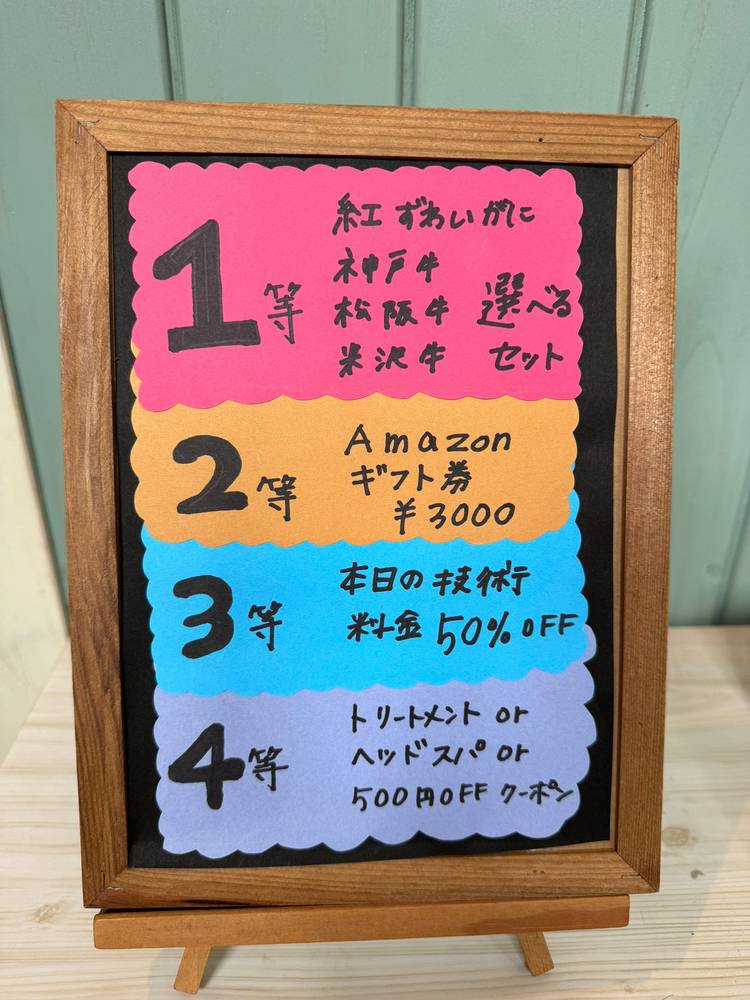 1等
紅ずわいがに
神戸牛
松阪牛 選べる
米沢牛 セット
2等
Amazon
ギフト券
¥3000
3等
本日の技術
料金 50% OFF
4等
トリートメント or
ヘッドスパ or
500円OFF クーポン